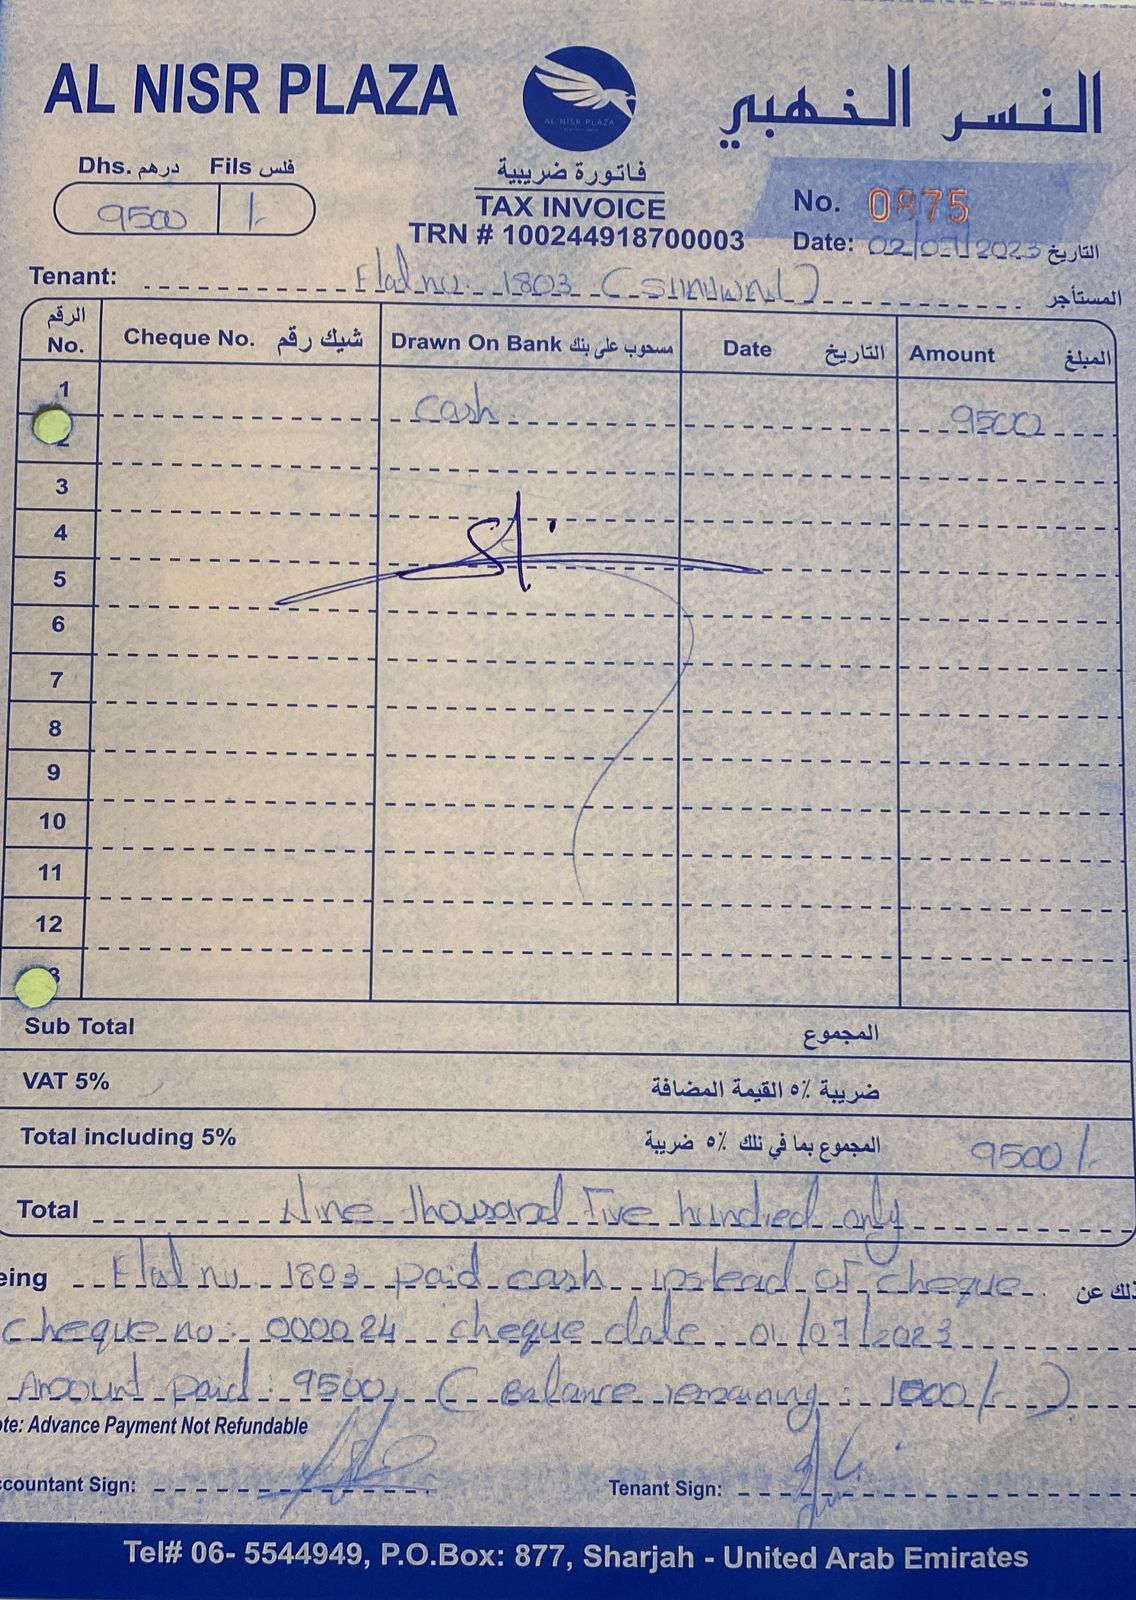 AL NISR PLAZA
AL NISR PLAZA
النسر الخهبي
Dhs. درهم Fils فلس
9500 /-
فاتورة ضريبية
TAX INVOICE
TRN # 100244918700003
No. 0875
Date: 02/07/2023 التاريخ
Tenant: Flat no. 1803 المستأجر
الرقم
No.
Cheque No. شيك رقم
Drawn On Bank مسحوب على بنك
Date التاريخ
Amount المبلغ
1 Cash 9500
2
3
4
5
6
7
8
9
10
11
12
3
Sub Total المجموع
VAT 5% ضريبة ٥٪ القيمة المضافة
Total including 5% المجموع بما في نلك ٥٪ ضريبة 9500/-
Total Nine thousand Five hundred only
eing Flat no 1803 paid cash instead of cheque ذلك عن
cheque no: 000024 cheque date 01/07/2023
Amount paid: 9500 (Balance remaining: 1000/-)
ote: Advance Payment Not Refundable
ccountant Sign:
Tenant Sign:
Tel# 06- 5544949, P.O.Box: 877, Sharjah - United Arab Emirates